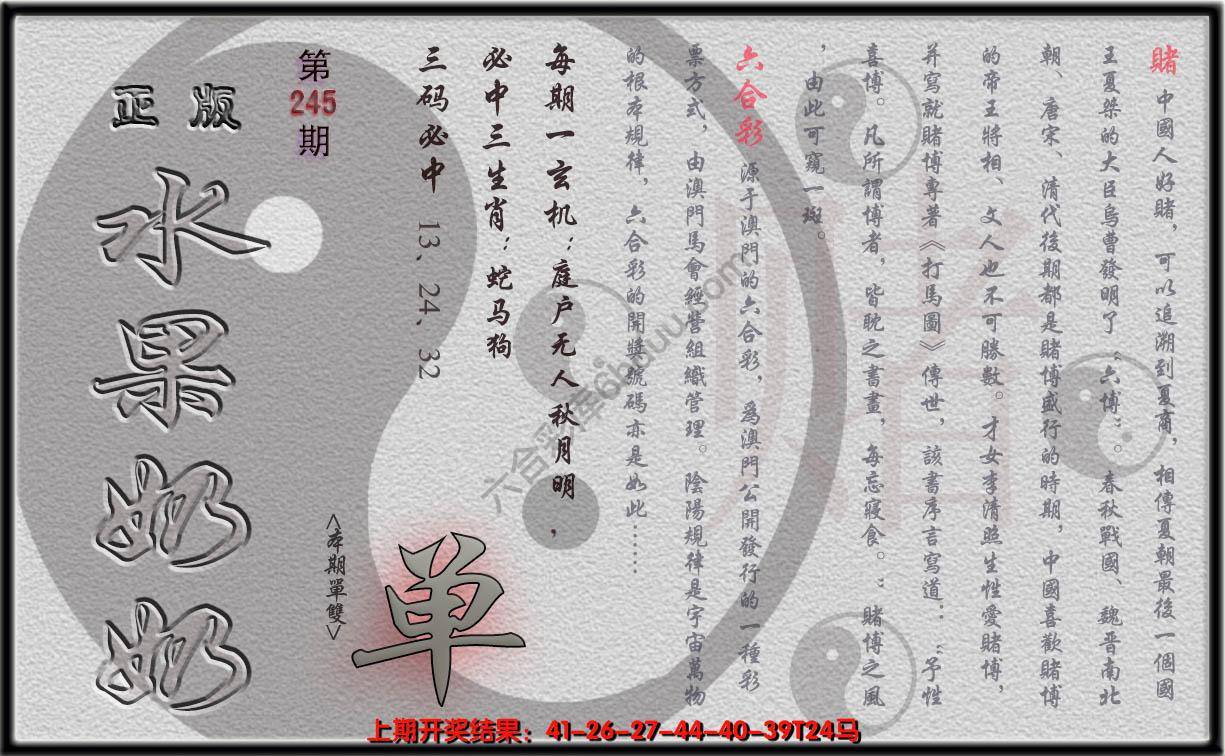 賭 中國人好賭，可以追溯到夏商，相傳夏朝最後一個國
王夏桀的大臣烏曹發明了“六博”。春秋戰國、魏晋南北
朝、唐宋、清代後期都是賭博盛行的時期，中國喜歡賭博
的帝王將相、文人也不可勝數。才女李清照生性愛賭博，
并寫就賭博專著《打馬圖》傳世，該書序言寫道：“予性
喜博。凡所謂博者，皆眈之書晝，每忘寢食。”賭博之風
，由此可窺一斑。
六合彩 源于澳門的六合彩，爲澳門公開發行的一種彩
票方式，由澳門馬會經營組織管理。陰陽規律是宇宙萬物
的根本規律，六合彩的開獎號碼亦是如此……
每期一玄机：庭户无人秋月明，
必中三生肖：蛇马狗
三码必中 13、24、32
第
245
期
<本期單雙>
单
正版
水果奶奶
六合彩库6huuu.com
上期开奖结果：41-26-27-44-40-39T24马